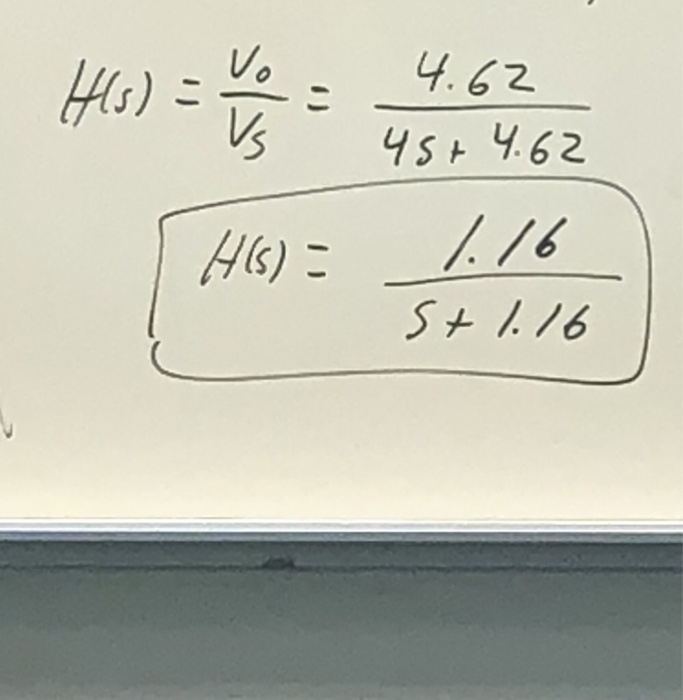 H(s) = Vo/Vs = 4.62/4s + 4.62
H(s) = 1.16/s + 1.16